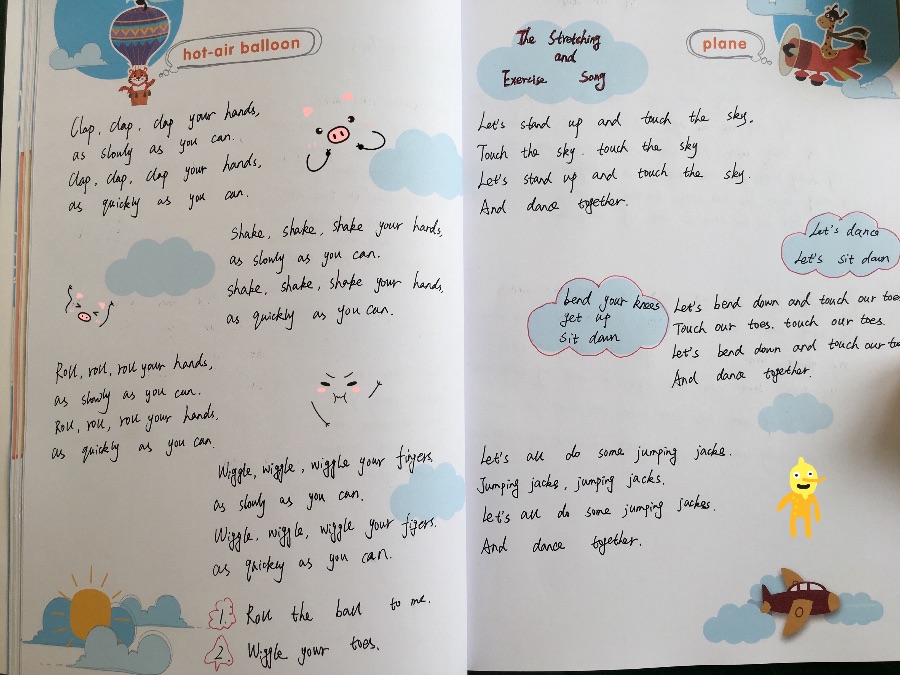 hot-air balloon
Clap, clap, clap your hands,
as slowly as you can.
Clap, clap, clap your hands,
as quickly as you can.
Shake, shake, shake your hands,
as slowly as you can.
Shake, shake, shake your hands,
as quickly as you can.
Roll, roll, roll your hands,
as slowly as you can.
Roll, roll, roll your hands.
as quickly as you can
Wiggle, wiggle, wiggle your fingers,
as slowly as you can.
Wiggle, wiggle, wiggle your figers.
as quickly as you can.
1. Roll the ball to me.
2 Wiggle your toes.
plane
The Stretching
and
Exercise Song
Let's stand up and touch the sky.
Touch the sky. touch the sky
Let's stand up and touch the sky.
And dance together.
Let's dance
Let's sit down
bend your knees
get up
sit down
Let's bend down and touch our toes
Touch our toes. touch our toes.
Let's bend down and touch our to
And dance together.
Let's all do some jumping jacks.
Jumping jacks, jumping jacks.
Let's all do some jumping jackes.
And dance together.